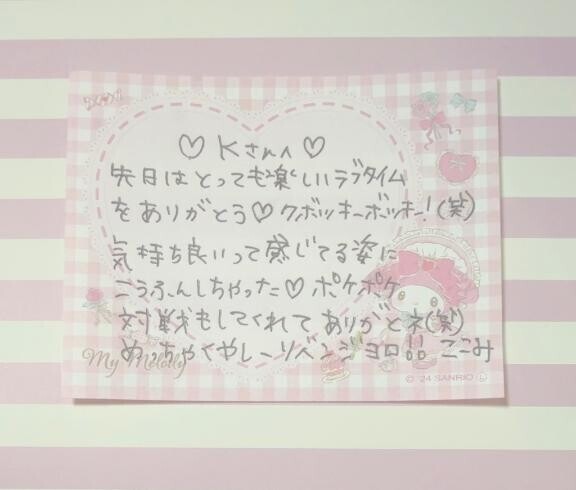 ♡ Kさんへ ♡
先日はとっても楽しいラブタイム
をありがとう♡クボッキーボッキー!(笑)
気持ち良いって感じてる姿に
こうふんしちゃった♡ ポケポケ
対戦もしてくれてありがとネ(笑)
めっちゃくやしーリベンジヨロ!! ここみ
My Melody
© '24 SANRIO Ⓛ